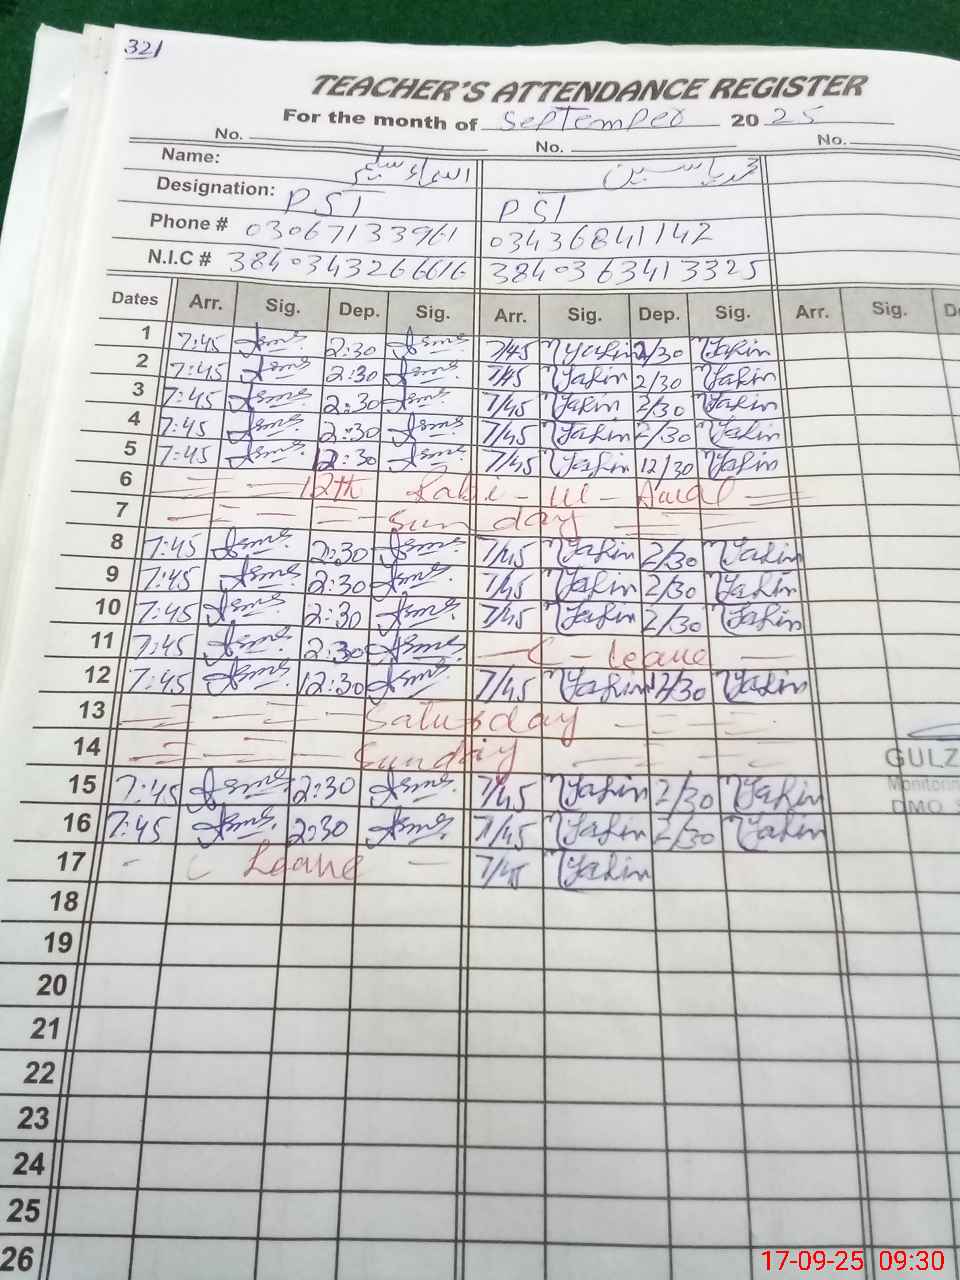 321
TEACHER'S ATTENDANCE REGISTER
For the month of September 20 25
No. No. No.
Name: اسماء سلیم محمد یاسین
Designation: PST PST
Phone # 03067133961 03436841142
N.I.C # 3840343266616 3840363413325
Dates Arr. Sig. Dep. Sig. Arr. Sig. Dep. Sig. Arr. Sig.
1 7:45 Asma 2:30 Asma 7/45 Yasin 2/30 Yasin
2 7:45 Asma 2:30 Asma 7/45 Yasin 2/30 Yasin
3 7:45 Asma 2:30 Asma 7/45 Yasin 2/30 Yasin
4 7:45 Asma 2:30 Asma 7/45 Yasin 2/30 Yasin
5 7:45 Asma 12:30 Asma 7/45 Yasin 12/30 Yasin
6 12th Rabi - ul - Awal
7 Sunday
8 7:45 Asma 2:30 Asma 7/45 Yasin 2/30 Yasin
9 7:45 Asma 2:30 Asma 7/45 Yasin 2/30 Yasin
10 7:45 Asma 2:30 Asma 7/45 Yasin 2/30 Yasin
11 7:45 Asma 2:30 Asma - C - leave -
12 7:45 Asma 12:30 Asma 7/45 Yasin 12/30 Yasin
13 Saturday
14 Sunday
GULZ
Monitorin
DMO
15 7:45 Asma 2:30 Asma 7/45 Yasin 2/30 Yasin
16 7:45 Asma 2:30 Asma 7/45 Yasin 2/30 Yasin
17 - C Leave - 7/45 Yasin
18
19
20
21
22
23
24
25
26
17-09-25 09:30